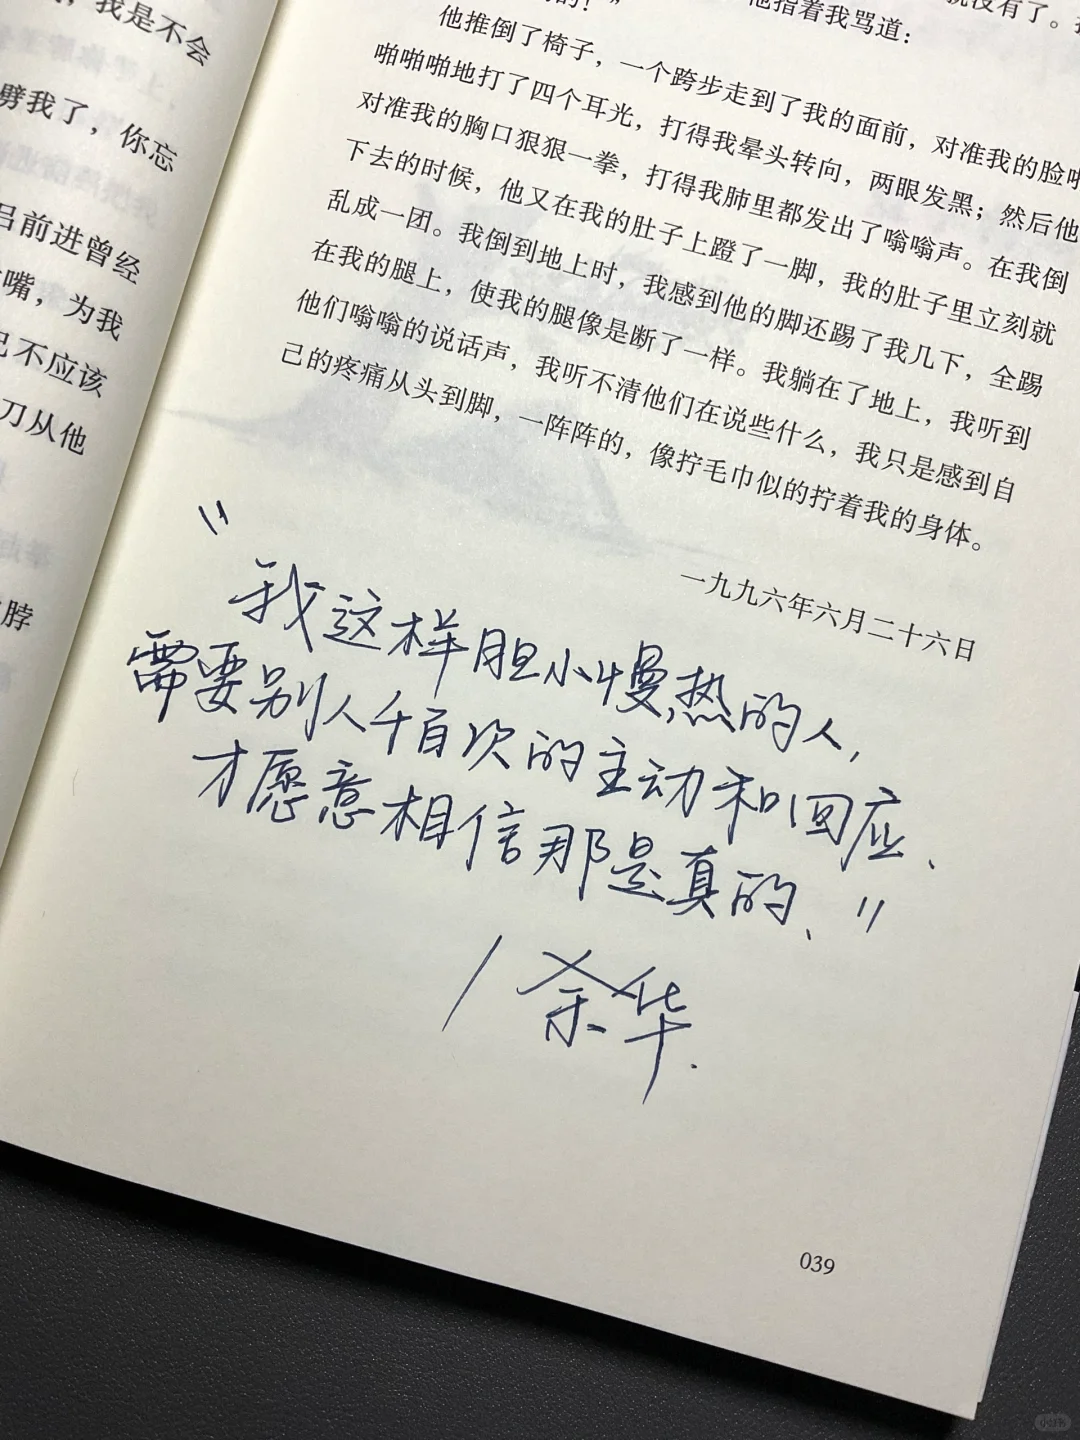 ，我是不会
劈我了，你忘
吕前进曾经
嘴，为我
己不应该
刀从他
脖
他指着我骂道：
他推倒了椅子，一个跨步走到了我的面前，对准我的脸啪
啪啪啪地打了四个耳光，打得我晕头转向，两眼发黑；然后他
对准我的胸口狠狠一拳，打得我肺里都发出了嗡嗡声。在我倒
下去的时候，他又在我的肚子上蹬了一脚，我的肚子里立刻就
乱成一团。我倒到地上时，我感到他的脚还踢了我几下，全踢
在我的腿上，使我的腿像是断了一样。我躺在了地上，我听到
他们嗡嗡的说话声，我听不清他们在说些什么，我只是感到自
己的疼痛从头到脚，一阵阵的，像拧毛巾似的拧着我的身体。
一九九六年六月二十六日
"我这样胆小慢热的人，
需要别人千百次的主动和回应、
才愿意相信那是真的、"
/余华.
039
小红书